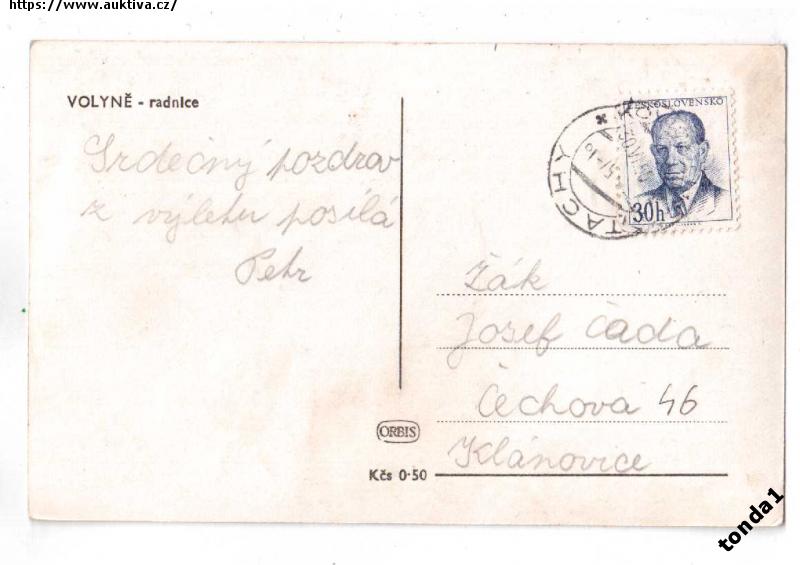 https://www.auktiva.cz/
VOLYNĚ - radnice
Srdečný pozdrav
z výletu posílá
Petr
ČESKOSLOVENSKO
30h
TACHY
Žák
Josef Čada
Čechova 46
Klánovice
ORBIS
Kčs 0·50
tonda1